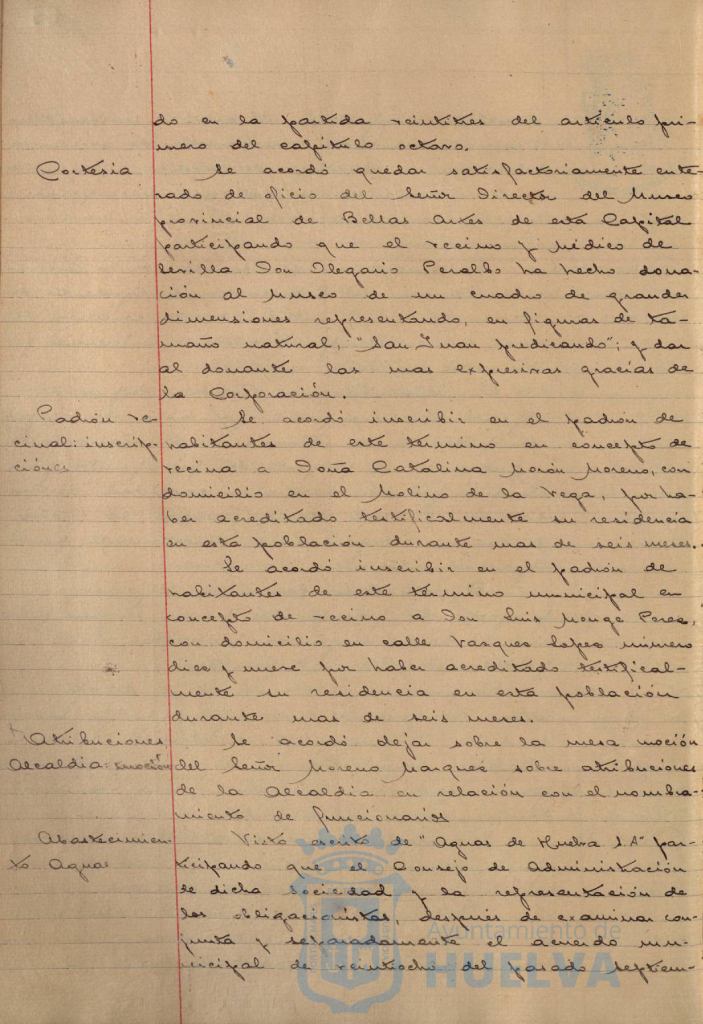 do en la partida veintitres del articulo pri-
mero del capitulo octavo.
Cortesia
Se acordó quedar satisfactoriamente ente-
rado de oficio del Señor Director del Museo
provincial de Bellas Artes de esta Capital
participando que el vecino y Médico de
Sevilla Don Olegario Peralbo ha hecho dona-
ción al Museo de un cuadro de grandes
dimensiones representando, en figuras de ta-
maño natural, "San Juan predicando"; y dar
al donante las mas expresivas gracias de
la Corporación.
Padrón ve-
cinal: inscrip-
ciones
Se acordó inscribir en el padrón de
habitantes de este término en concepto de
vecina a Doña Catalina Morón Moreno, con
domicilio en el Molino de la Vega, por ha-
ber acreditado testificalmente su residencia
en esta población durante mas de seis meses.
Se acordó inscribir en el padrón de
habitantes de este término municipal en
concepto de vecino a Don Luis Monge Perez,
con domicilio en calle Vazquez Lopez número
diez y nueve por haber acreditado testifical-
mente su residencia en esta población
durante mas de seis meses.
Atribuciones
Alcaldia: moción
Se acordó dejar sobre la mesa moción
del Señor Moreno Marquez sobre atribuciones
de la Alcaldia en relación con el nombra-
miento de funcionarios
Abastecimien-
to Aguas
Visto escrito de "Aguas de Huelva S.A" par-
ticipando que el Consejo de Administración
de dicha Sociedad y la representación de
los obligacionistas, después de examinar con-
junta y separadamente el acuerdo mu-
nicipal de veintiocho del pasado Septiem-
Ayuntamiento de
HUELVA